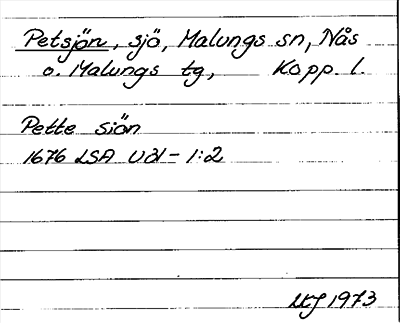 Petsjön, sjö, Malungs sn, Nås
o. Malungs tg, Kopp. l.
Pette siön
1676 LSA U21-1:2
1973